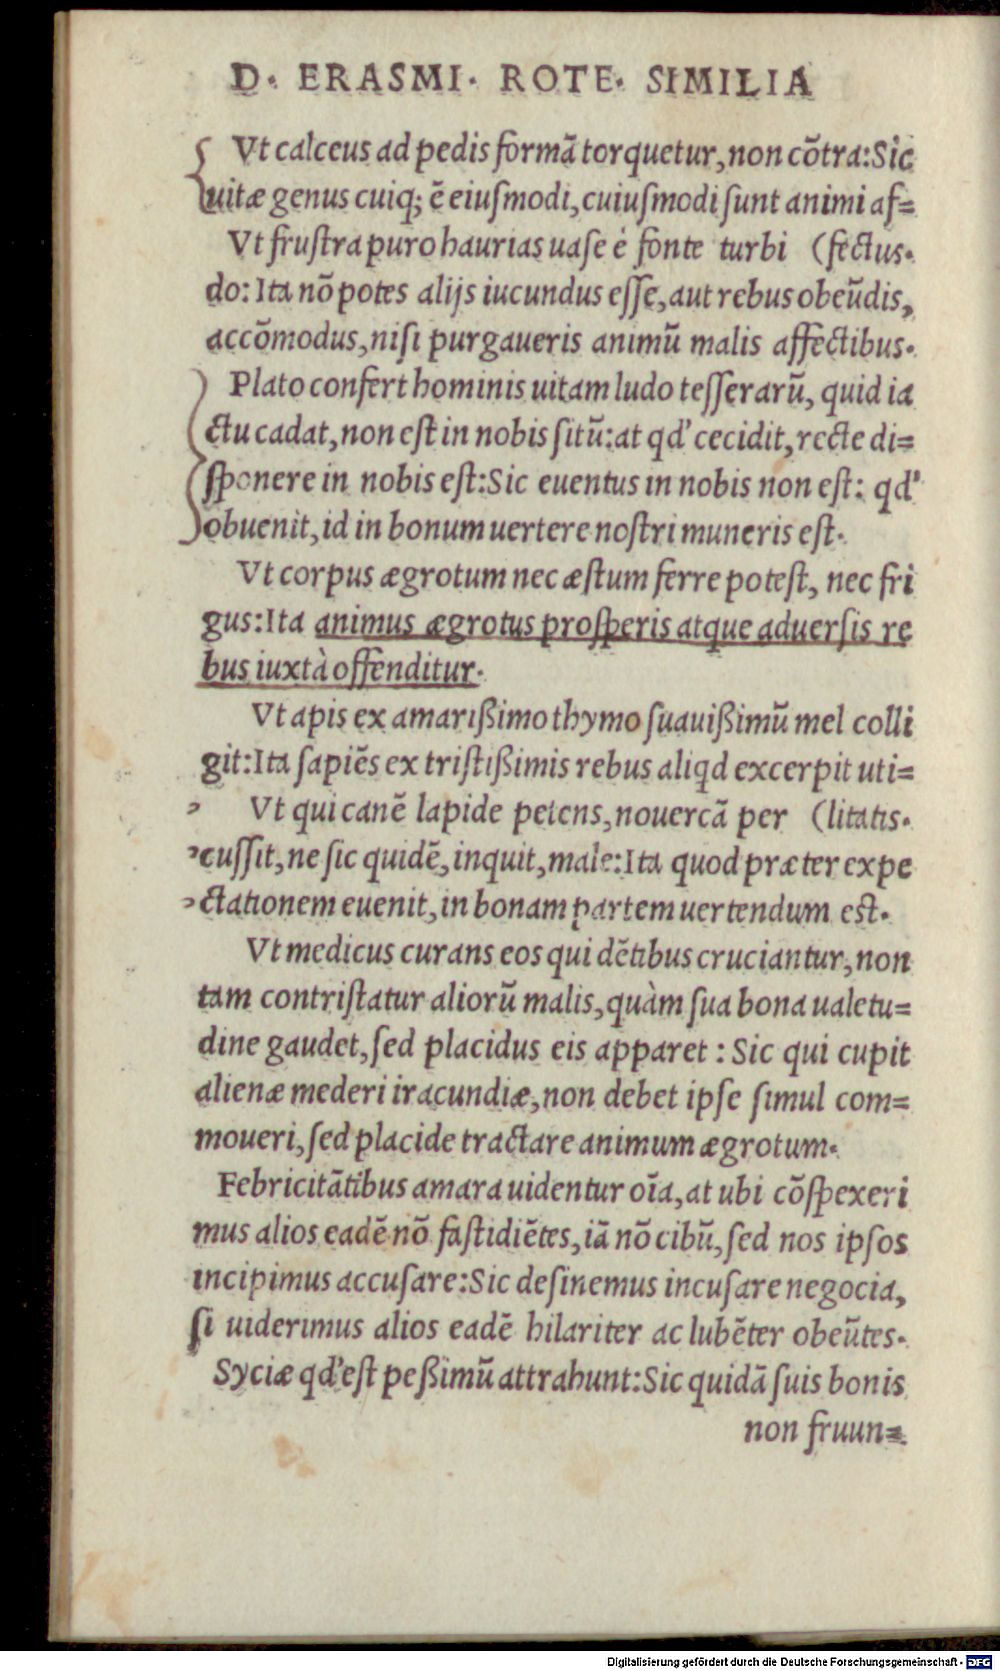 D. ERASMI. ROTE. SIMILIA
Vt calceus ad pedis formã torquetur, non cõtra: Sic
uitæ genus cuiq; ẽ eiuſmodi, cuiuſmodi ſunt animi af=
Vt fruſtra puro haurias uaſe è fonte turbi (fectus.
do: Ita nõ potes alijs iucundus eſſe, aut rebus obeũdis,
accõmodus, niſi purgaueris animũ malis affectibus.
Plato confert hominis uitam ludo teſſerarũ, quid ia
ctu cadat, non eſt in nobis ſitũ: at qd' cecidit, recte di=
ſponere in nobis eſt: Sic euentus in nobis non eſt: qd'
obuenit, id in bonum uertere noſtri muneris eſt.
Vt corpus ægrotum nec æſtum ferre poteſt, nec fri
gus: Ita animus ægrotus proſperis atque aduerſis re
bus iuxtà offenditur.
Vt apis ex amarißimo thymo ſuauißimũ mel colli
git: Ita ſapiẽs ex triſtißimis rebus aliqd excerpit uti=
Vt qui canẽ lapide petens, nouercã per (litatis.
cuſſit, ne ſic quidẽ, inquit, male: Ita quod præter expe
ctationem euenit, in bonam partem uertendum eſt.
Vt medicus curans eos qui dẽtibus cruciantur, non
tam contriſtatur aliorũ malis, quàm ſua bona ualetu=
dine gaudet, ſed placidus eis apparet : Sic qui cupit
alienæ mederi iracundiæ, non debet ipſe ſimul com=
moueri, ſed placide tractare animum ægrotum.
Febricitãtibus amara uidentur oĩa, at ubi cõſpexeri
mus alios eadẽ nõ faſtidiẽtes, iã nõ cibũ, ſed nos ipſos
incipimus accuſare: Sic deſinemus incuſare negocia,
ſi uiderimus alios eadẽ hilariter ac lubẽter obeũtes.
Syciæ qd'eſt peßimũ attrahunt: Sic quidã ſuis bonis
non fruun=
Digitalisierung gefördert durch die Deutsche Forschungsgemeinschaft - DFG